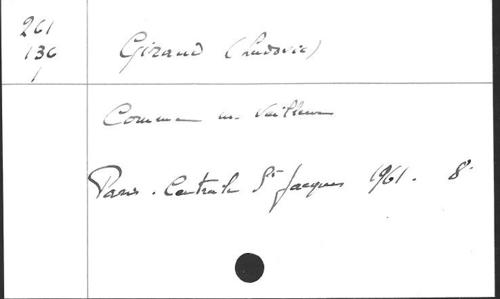 261
136
1
Giraud (Ludovic)
Comme un Veilleur
Paris. Centrale St Jacques 1961. 8°